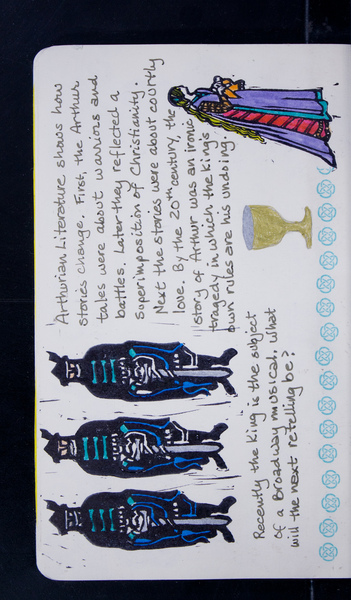 Arthurian Literature shows how
stories change. First, the Arthur
tales were about warriors and
battles. Later they reflected a
superimposition of Christianity.
Next the stories were about courtly
love. By the 20th century, the
story of Arthur was an ironic
tragedy in which the king's
own rules are his undoing.
Recently the King is the subject
of a Broadway musical. What
will the next retelling be?